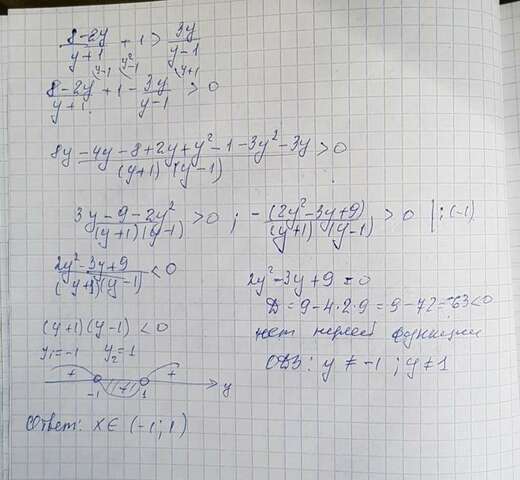 (8-2y)/(y+1) + 1 > 3y/(y-1)
(8-2y)/(y+1) (y-1 + 1 (y²-1 - 3y/(y-1) (y+1 > 0
(8y-4y-8+2y+y²-1-3y²-3y)/((y+1)·(y-1)) > 0
(3y-9-2y²)/((y+1)(y-1)) > 0 ; -(2y²-3y+9)/((y+1)(y-1)) > 0 |:(-1)
(2y²-3y+9)/((y+1)(y-1)) < 0
2y²-3y+9=0
D=9-4·2·9=9-72=-63<0
нет нулей функции
ОДЗ: y≠-1; y≠1
(y+1)(y-1)<0
y₁=-1 y₂=1
+ (-) + y
-1 1
Ответ: x∈(-1;1)